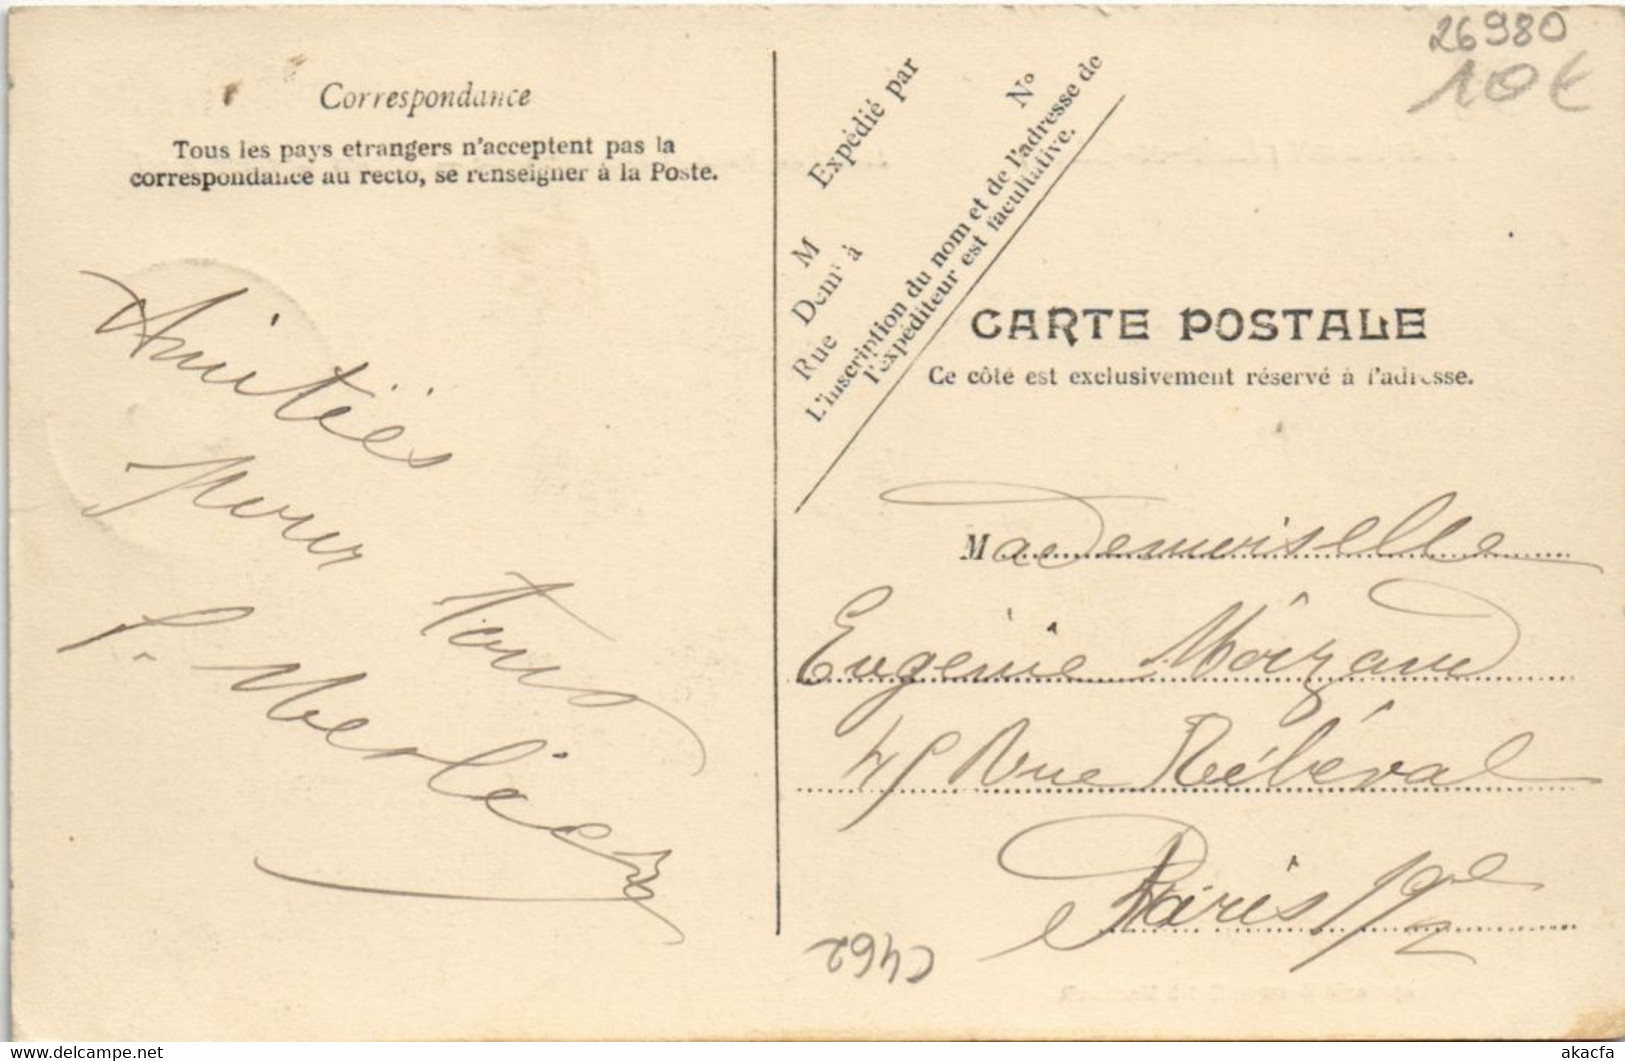 Correspondance
Tous les pays etrangers n'acceptent pas la
correspondance au recto, se renseigner à la Poste.
Amitiés
pour tous
P. Merlier
Expédié par
M
Demt à
Rue
No
L'inscription du nom et de l'adresse de
l'expéditeur est facultative.
26980
10€
CARTE POSTALE
Ce côté est exclusivement réservé à l'adresse.
Mademoiselle
Eugénie
45 Rue Rébeval
Paris 19e
C462
akacfa